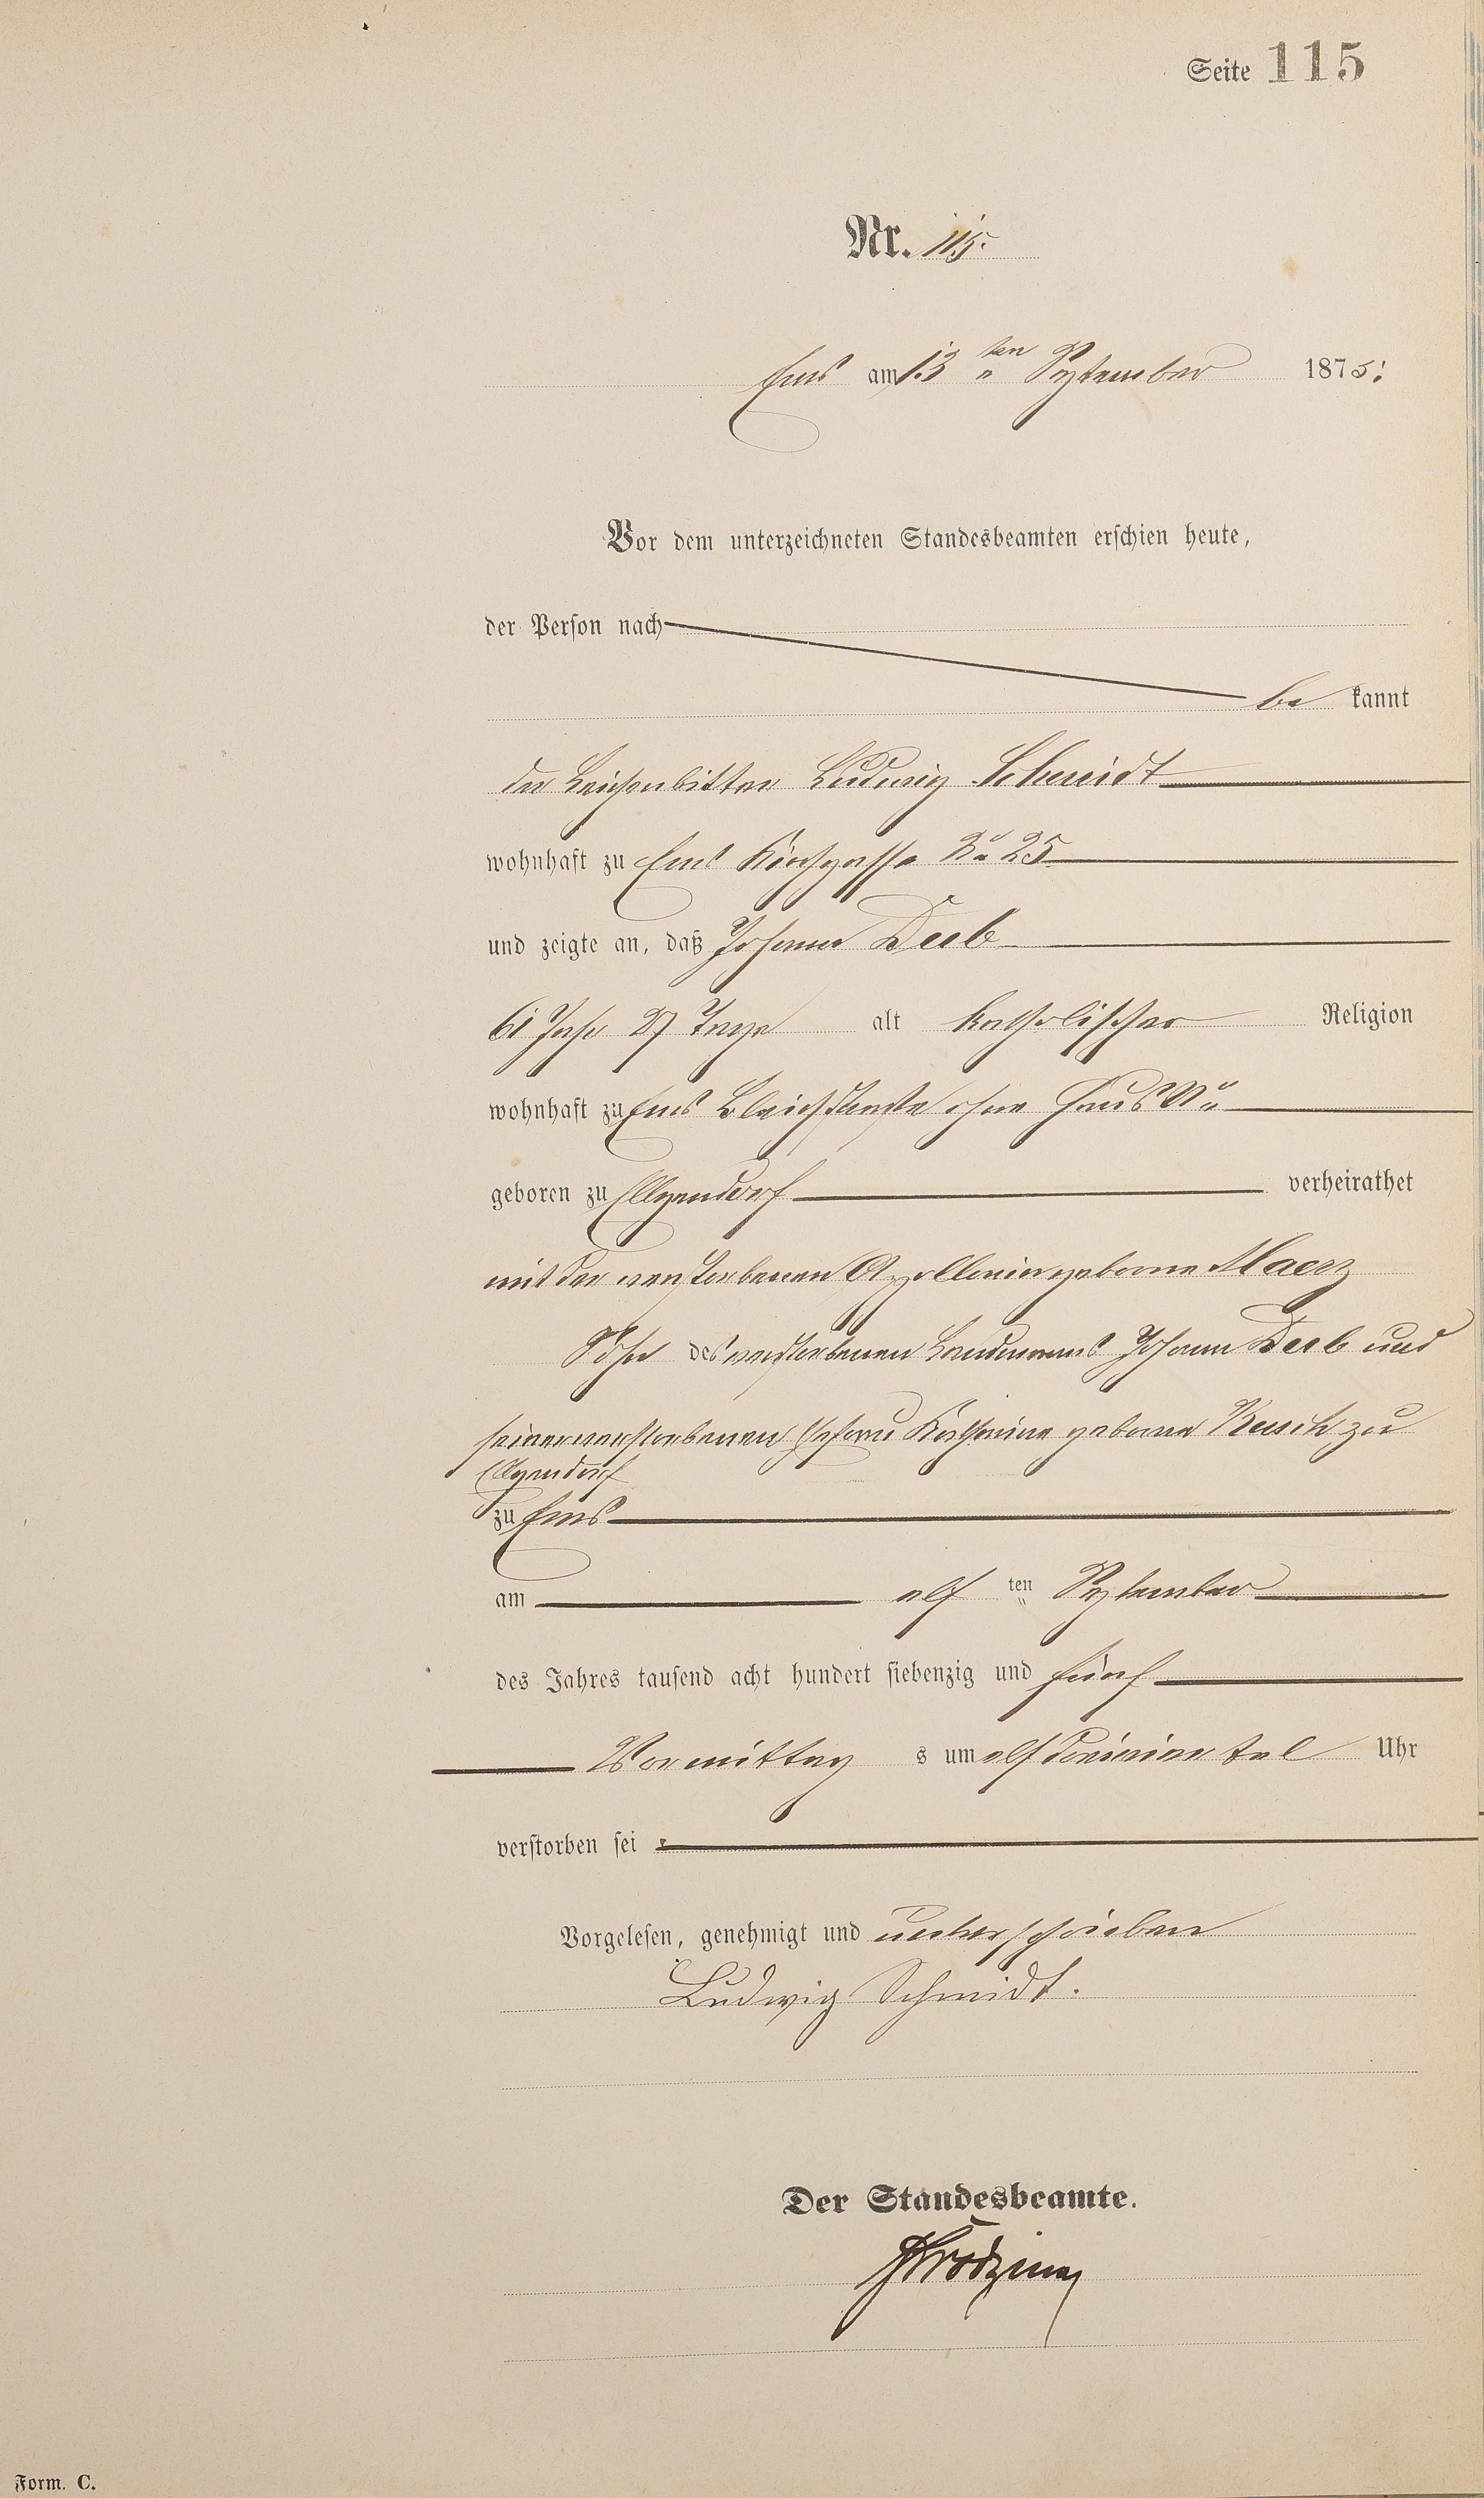 Seite 115
Nr. 115.
Ems am 13ten September 1875.
Vor dem unterzeichneten Standesbeamten erschien heute,
der Person nach
be kannt
der Leichenbitter Ludwig Schmidt
wohnhaft zu Ems Kirchgasse No 25
und zeigte an, daß Johann Deeb
61 Jahr 27 Tage alt katholischer Religion
wohnhaft zu Ems Bleichstraße ohne Haus No
geboren zu Elgendorf verheirathet
mit der verstorbenen Apollonia geborne Maerz
Sohn des verstorbenen Landmanns Johann Deeb und
seiner verstorbenen Ehefrau Katharina geborne Reusch zu
Elgendorf
zu Ems
am elf ten September
des Jahres tausend acht hundert siebenzig und fünf
Vormittag s um elf dreiviertel Uhr
verstorben sei
Vorgelesen, genehmigt und unterschrieben
Ludwig Schmidt.
Der Standesbeamte.
Form. C.